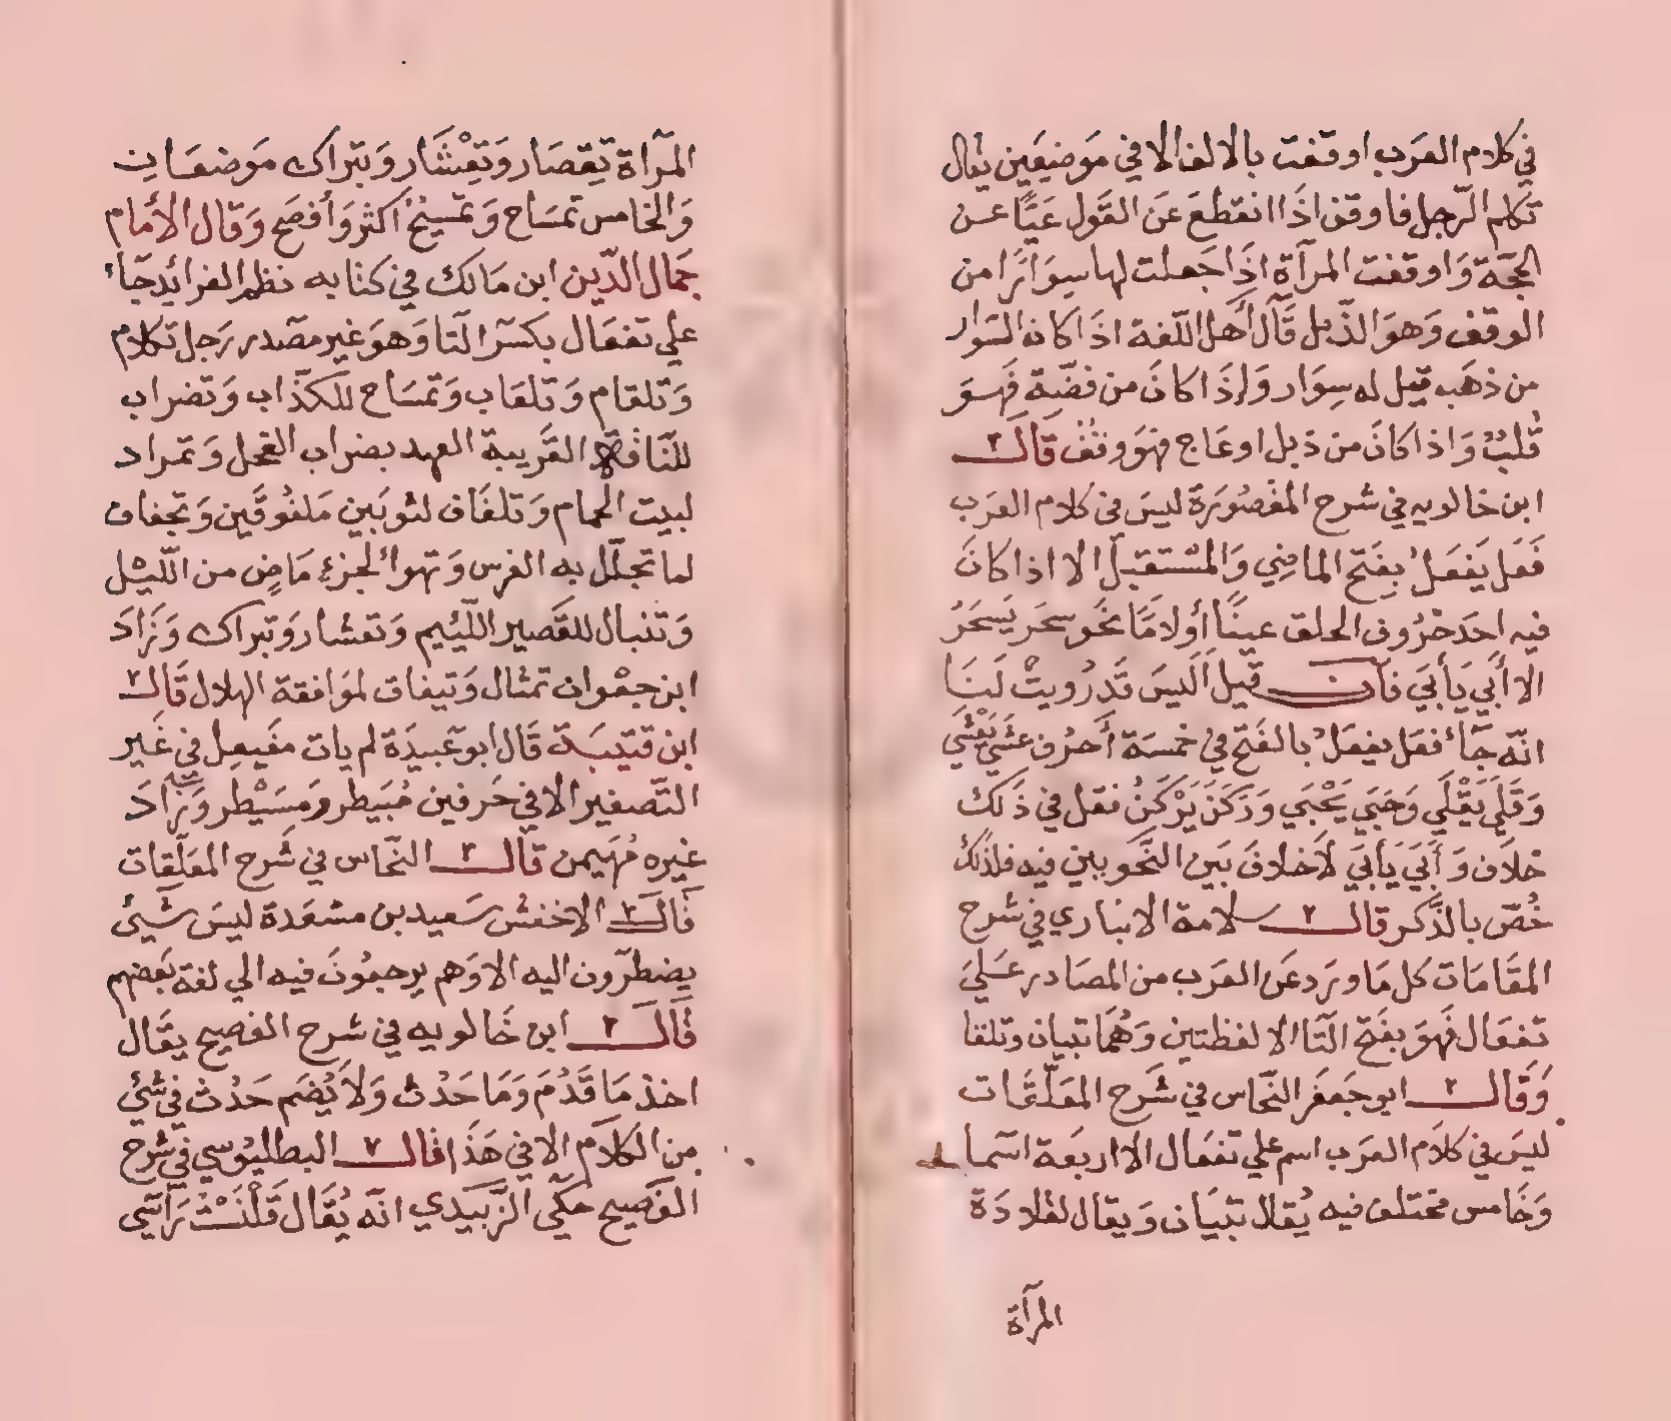 في كلام العرب اوقفت بالالف الا في موضعين يقال
تكلم الرّجل فاوقف اذا انقطع عن القول عيًّا عن
الحجّة وَاوقفت المرآة اذَا جَعلت لها سوَارًا من
الوقف وَهوَ الذّبل قَال أهل اللّغة اذَا كان السّوار
من ذهَب قيل له سِوَار وَإذَا كانَ من فضّة فَهوَ
قُلبٌ وَاذا كانَ من ذبل اوعَاج فهوَ وقف قَالــ
ابن خالويه في شرح المقصُورَة ليسَ في كلام العرَب
فَعَل يَفعَلُ بفَتح الماضِي وَالمُستقبل الا اذا كانَ
فيه احَد حرُوف الحلق عينًا أولامًا نحَو سحَر يَسحَرُ
الا أَبي يَأبَي فان قيل الَيسَ قَد رُويتْ لَنَا
انّه جَآءَ فعَل يفعَلُ بالفَتح في خمسَة أحرُف عشَي يَعْشَي
وَقَلَي يَقْلَي وَحَبَي يَحْبَي وَرَكَنَ يَرْكَنُ فقل في ذَلك
خلَاف وَأَبَي يَأبَي لَاخلافَ بَين النَّحَويين فيه فلذلك
خُصّ بالذّكر قالــ سلامة الانباري في شرح
المقَامَات كل مَا ورَد عَن العَرب من المصَادر عَلَي
تفعَال فهوَ بفَتح التّا الا لفظتين وَهُمَا تبيان وتلقا
وَقَالــ ابو جَعفَر النّحاس في شَرح المعَلّقات
ليسَ في كلَام العَرب اسم علي تفعَال الا اربَعة اسمَا
وَخَامس مختلف فيه يُقال تبيَان وَيقال لقلادَة
المرآة
المرآة تِقصَار وَتِعْشَار وَتبرَاك مَوضعَان
وَالخامس تمسَاح وَتمسَحُ أكثر وَأفصَح وَقال الأمام
جمَال الدّين ابن مَالك في كتابه نظم الفرائد جَآءَ
علي تفعَال بكسر التّا وَهوَ غير مصَدر رَجل تكلام
وَتلقام وَتلعَاب وَتمسَاح للكذّاب وَتضراب
للنّاقة القَريبة العهد بضراب الفحل وَتمراد
لبيت الحمام وَتلفَاف لثوبَين مَلفُوقَين وَتجفاف
لما تجلّل به الفرس وَتهوآءَ لجزء مَاضٍ من اللّيل
وَتنبال للقَصير اللّئيم وَتعشار وَتبراك وَزَادَ
ابن جعْوان تمثال وَتيفاق لموَافقة الهلال قَالــ
ابن قتَيبَة قَال ابو عَبيدَة لم يات مفَيعِل في غَير
التَّصغير الا في حَرفين مُبَيطر وَمسَيْطر وَزَادَ
غيره مُهَيمن قالــ النّحاس في شَرح المعَلّقات
قَالــ الاخفش سَعيد بن مسعَدة ليسَ شَيئ
يضطرّون اليه الا وَهم يرجعُونَ فيه الي لغة بَعضهم
قَالــ ابن خَالويه في شَرح الفصيح يقَال
اخذ مَا قَدُمَ وَمَا حَدُث وَلَا يُضَم حَدُث في شَيئ
من الكلَام الا في هَذَا قالــ البطليُوسي في شَرح
الفَصيح حكَي الزّبيَدي انّه يُقَال قَلْنَسْتُ رَاسي